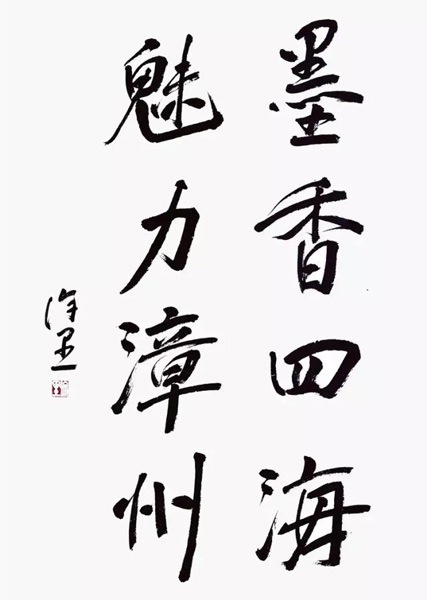 墨香四海
魅力漳州